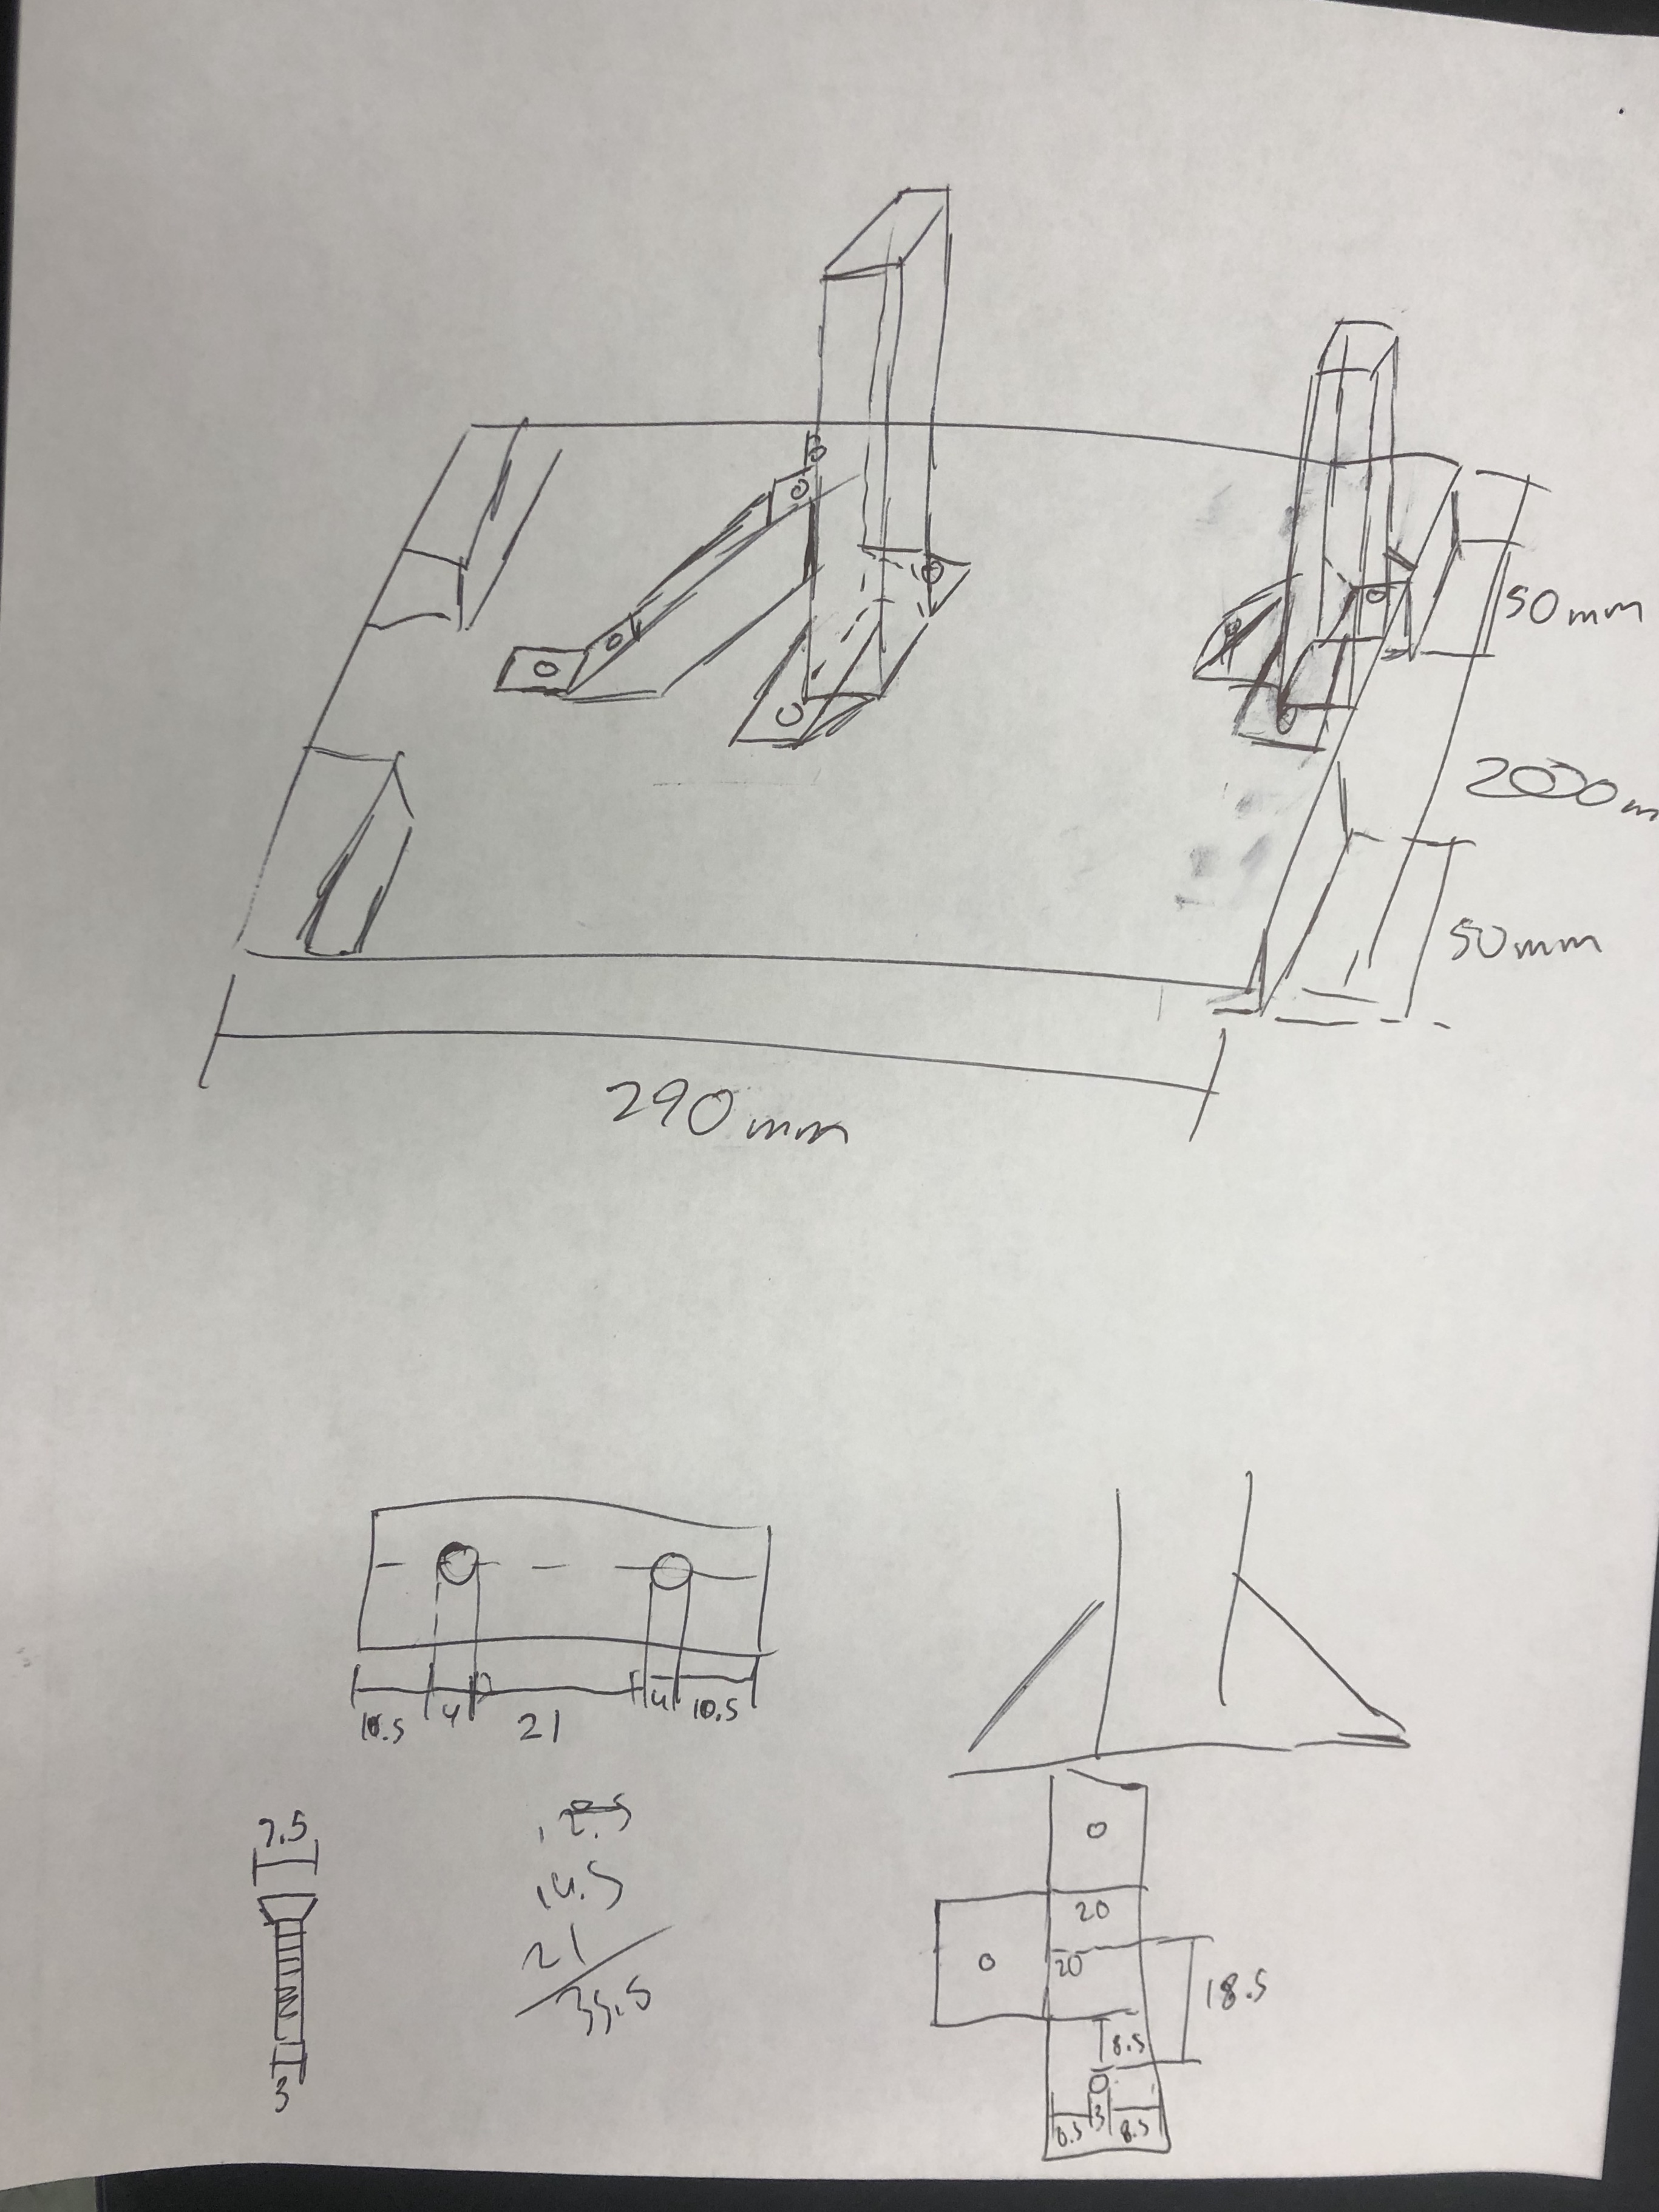 50mm
2000m
50mm
290mm
10.5 4 21 4 10.5
7.5
14.5
21
35.5
3
20
20
18.5
8.5
8.5 3 8.5